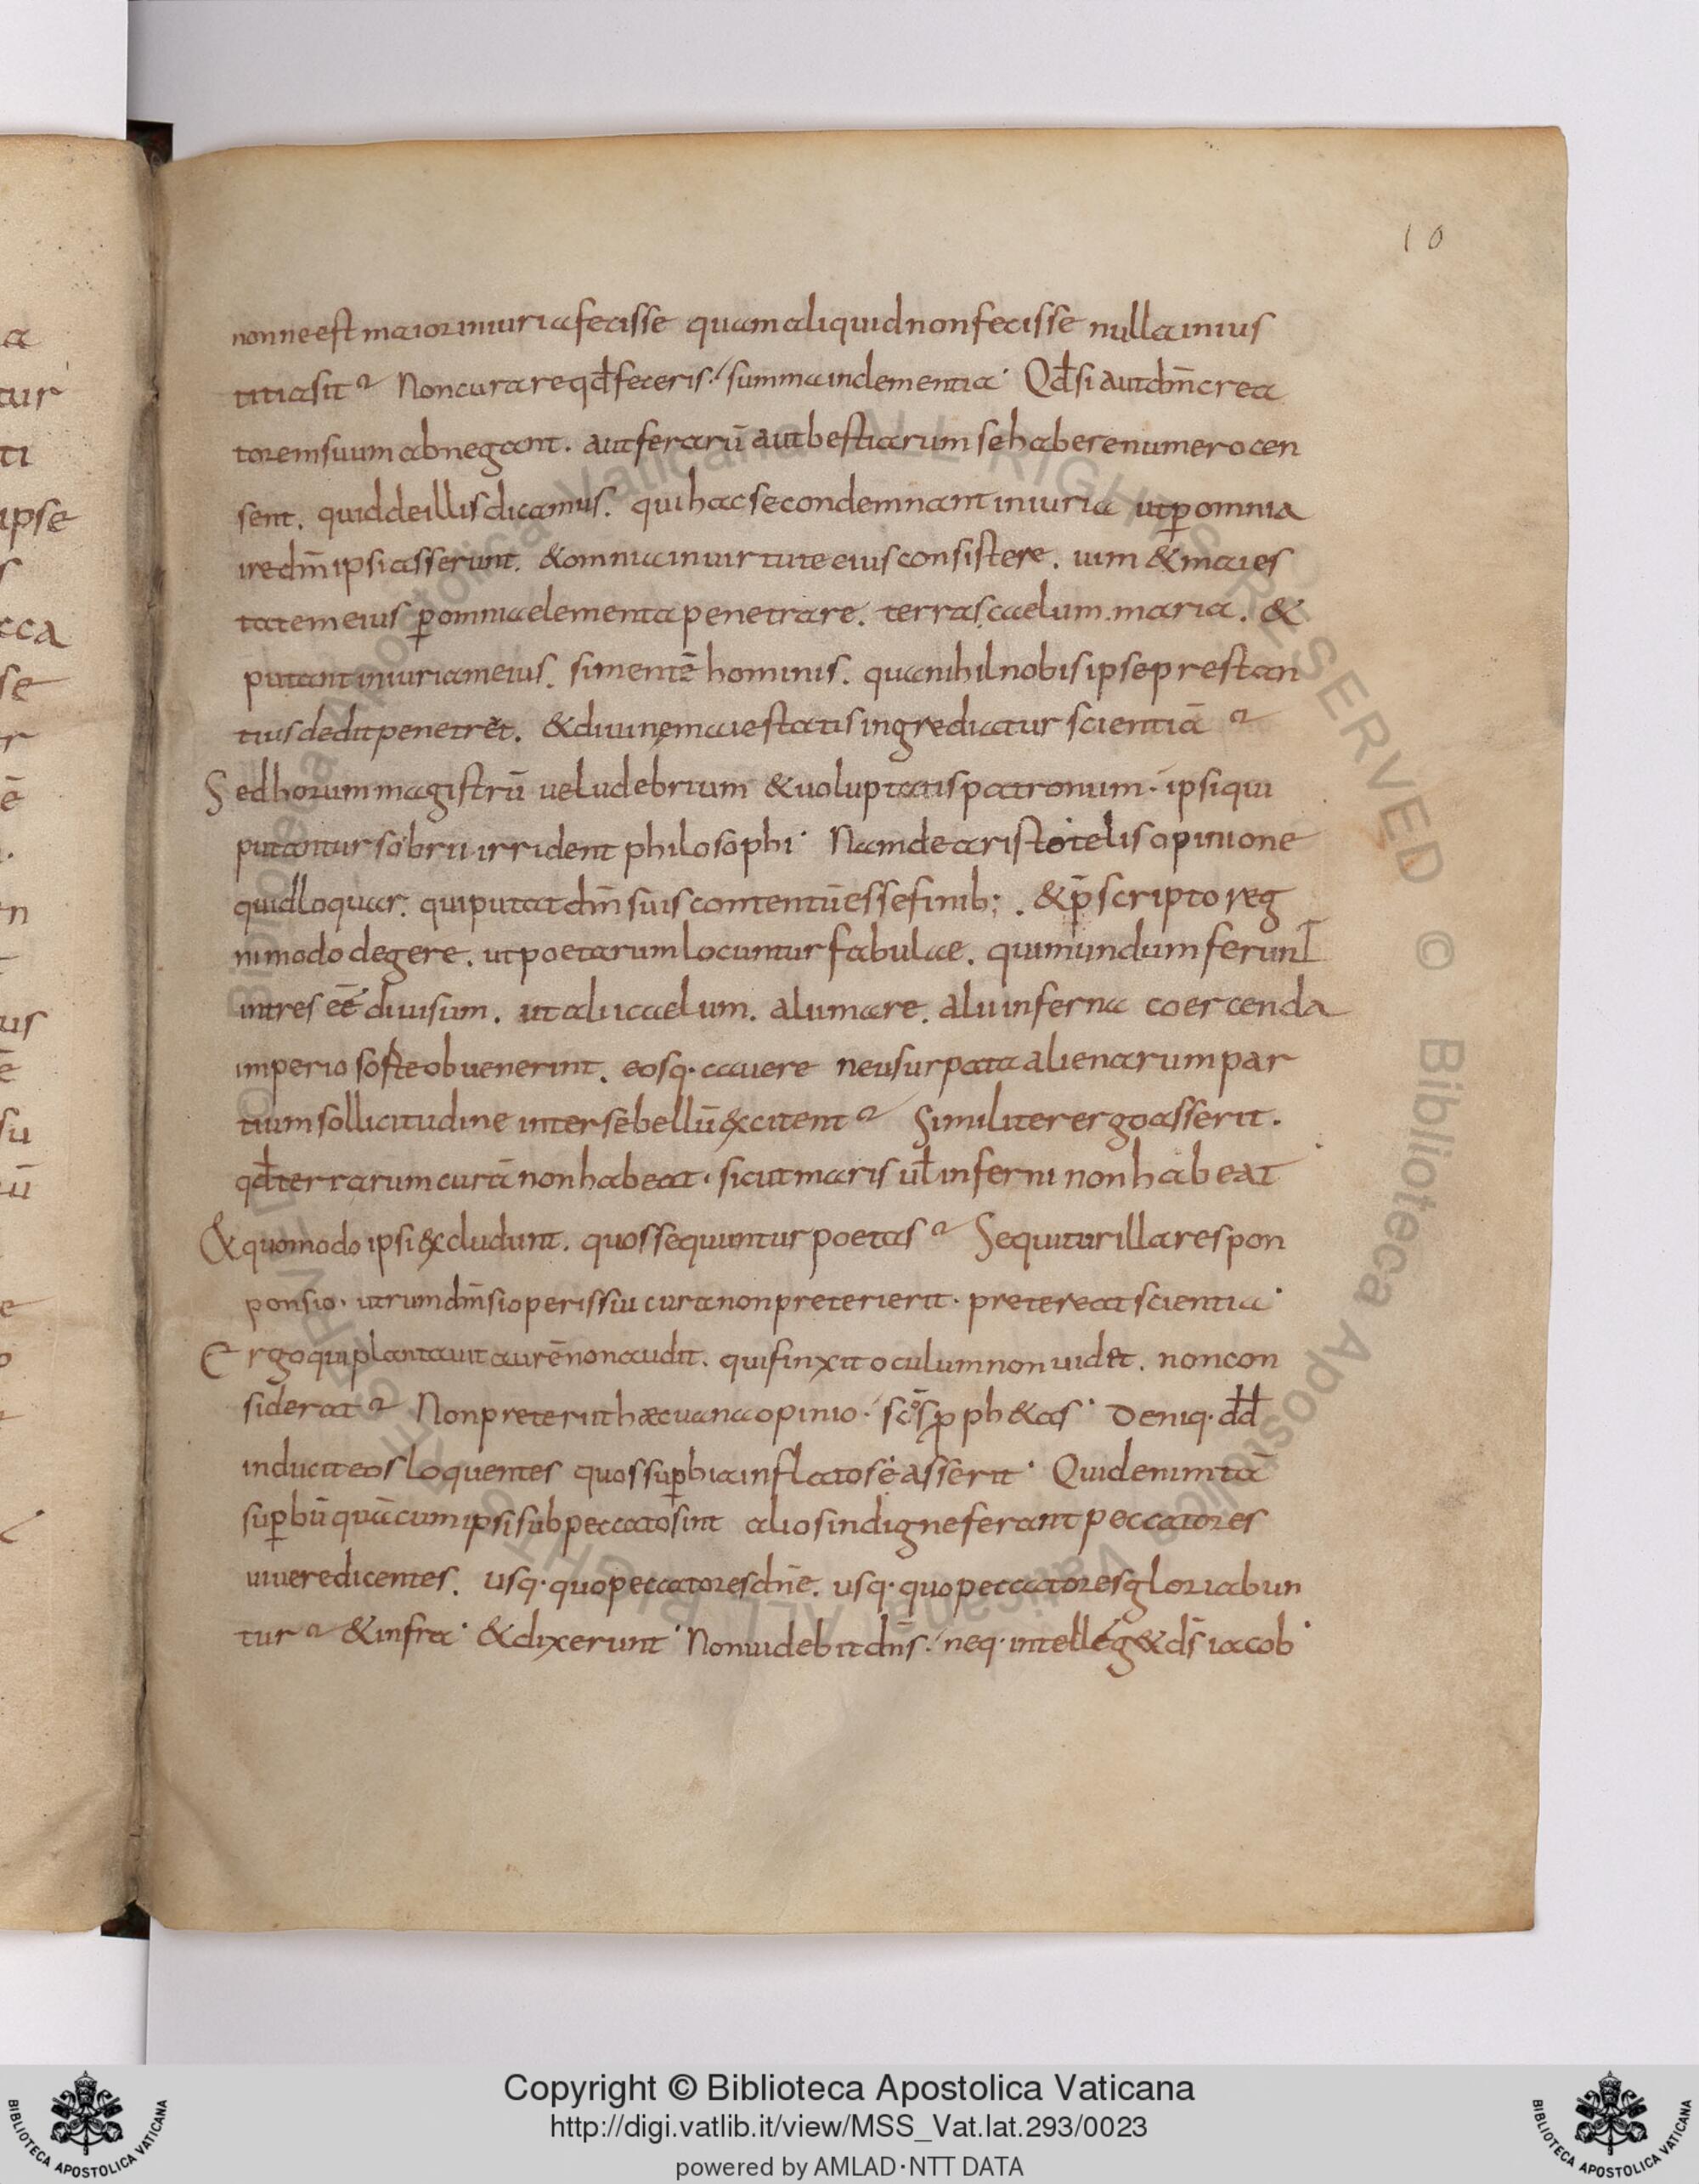 10
nonne est maior iniuria fecisse quam aliquid non fecisse nulla inius
titia sit? Non curare qđ feceris summa inclementia· Qđ si aut dm̄ crea
torem suum abnegant. aut ferarū aut bestiarum se habere numero cen
sent. quid de illis dicamus. qui hac se condemnant iniuria ut ꝑ omnia
ire dm̄ ipsi asserunt. & omnia in uirtute eius consistere. uim & maies
tatem eius ꝑ omnia elementa penetrare. terras, caelum. maria. &
putant iniuriam eius. si mentē hominis. qua nihil nobis ipse prestan
tius dedit penetret. & diuinę maiestatis ingrediatur scientiā?
Sed horum magistrū uelud ebrium & uoluptatis patronum· ipsi qui
putantur sobrii irrident philosophi· Nam de aristotelis opinione
quid loquar. qui putat dm̄ suis contentū esse finib;. & p̄scripto reg
ni modo degere. ut poetarum locuntur fabulae. qui mundum ferunt
in tres eē diuisum. ut alii caelum. alii mare. alii inferna coercenda
imperio sorte obuenerint. eosq· cauere ne usurpata alienarum par
tium sollicitudine inter se bellū &xcitent? Similiter ergo asserit.
qđ terrarum curā non habeat· sicut maris ul̄ inferni non habeat
& quomodo ipsi &xcludunt. quos sequuntur poetas? Sequitur illa respon
ponsio· utrum dm̄ si operis sui cura non preterierit· pretereat scientia·
Ergo qui plantauit aurē non audit. qui finxit oculum non uidet. non con
siderat? Non preteriit haec uana opinio· scōs ꝓph&as· Deniq· dđ
inducit eos loquentes quos suꝑbia inflatos asserit· Quid enim tā
suꝑbū quā cum ipsi sub peccato sint alios indigne ferant peccatores
uiuere dicentes. usq· quo peccatores dn̄e. usq· quo peccatores gloriabun
tur? & infra· & dixerunt· Non uidebit dn̄s· neq· intelleg& ds̄ iacob·
Copyright © Biblioteca Apostolica Vaticana
http://digi.vatlib.it/view/MSS_Vat.lat.293/0023
powered by AMLAD·NTT DATA